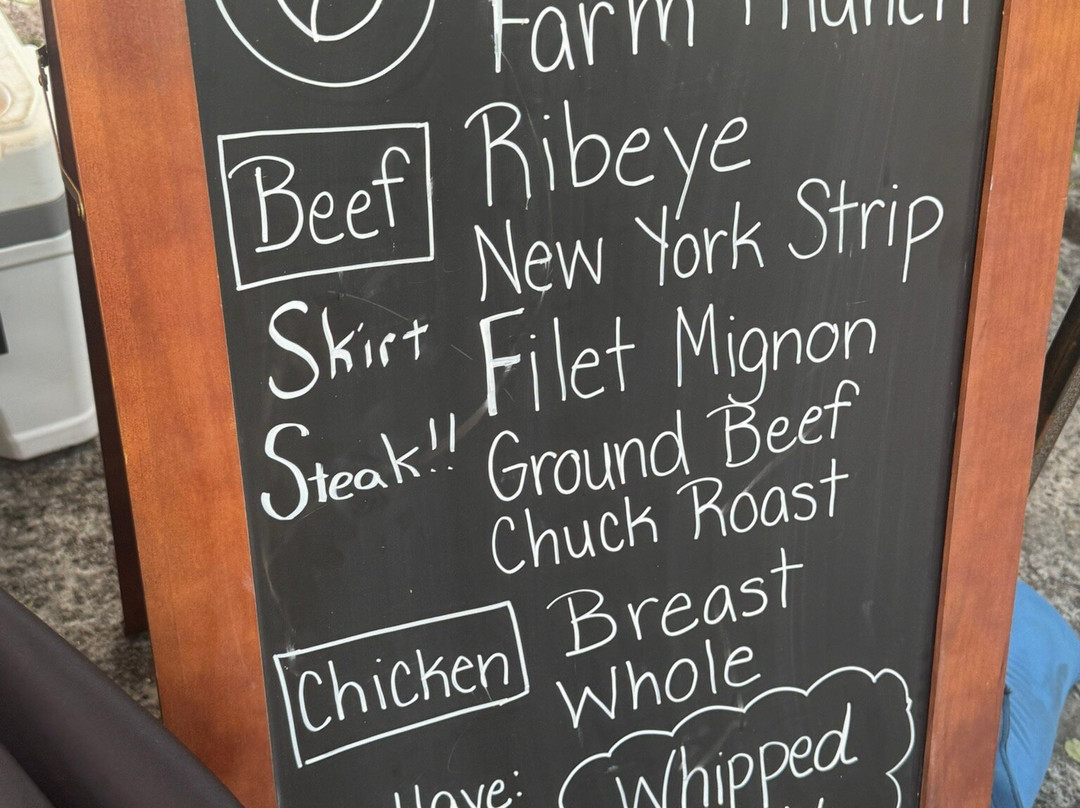 Farm
Beef
Ribeye
New York Strip
Skirt
Steak!!
Filet Mignon
Ground Beef
Chuck Roast
Chicken
Breast
Whole
Have:
Whipped